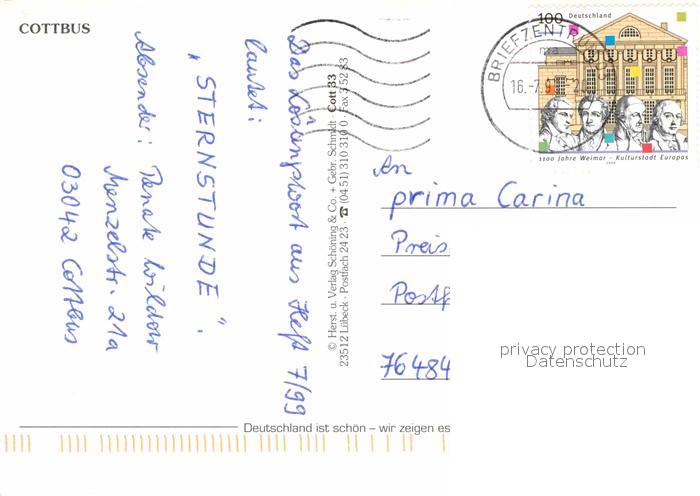 COTTBUS
Das Lösungswort aus Heft 7/99
lautet:
„STERNSTUNDE“.
Absender: Renate Wildow
Menzelstr. 21a
03042 Cottbus
© Herst. u. Verlag Schöning & Co. + Gebr. Schmidt · Cott 33
23512 Lübeck · Postfach 24 23 · ☎ (04 51) 310 310 · Fax 3 52 83
100 Deutschland
BRIEFZENTRUM
16.-7.9
1100 Jahre Weimar - Kulturstadt Europas
An
prima Carina
Preis
Postf
76484
privacy protection
Datenschutz
Deutschland ist schön – wir zeigen es